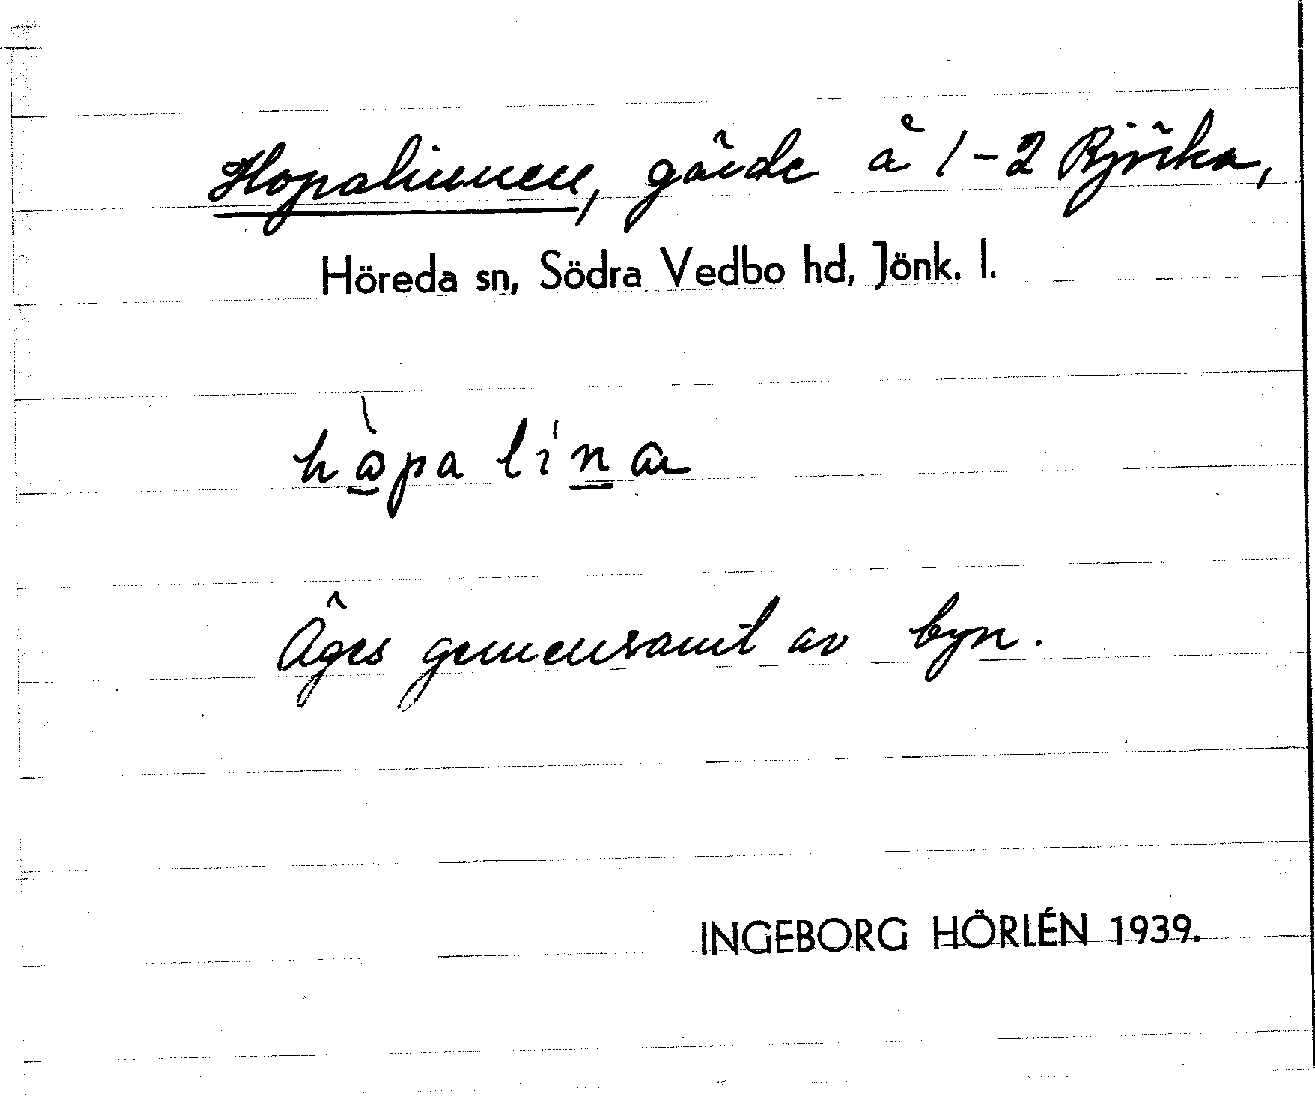 Hopalinnen, gärde å 1-2 Rjöka,
Höreda sn, Södra Vedbo hd, Jönk. l.
hòpa lína
Äges gemensamt av byn.
INGEBORG HÖRLÉN 1939.